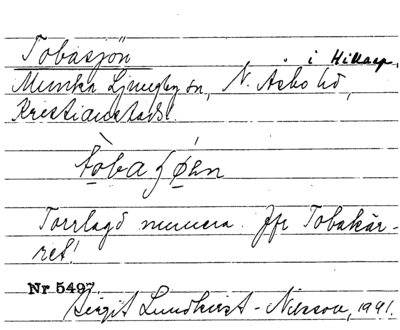 Tobasjön i Hillarp,
Munka Ljungby sn, N. Åsbo hd,
Kristianstads l.
tòbaʃǿen
Torrlagd numera. Jfr Tobakär-
ret!
Nr 5497.
Birgit Lundkvist-Nilsson, 1941.